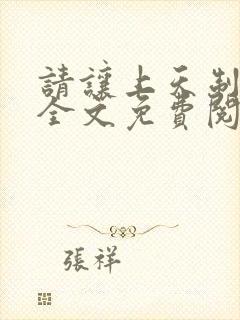 請讓上天制
全文免費閱
張祥